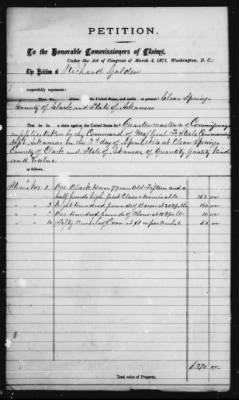 PETITION.
To the Honorable Commissioners of Claims,
Under the Act of Congress of March 3, 1871, Washington, D. C.:
The Petition of Richard Golden
respectfully represents: the United States, and resides at present Clear Spring
County of Clark and State of Arkansas
a claim against the United States for Quartermaster & Commissary
supplies taken by the Command of Maj Genl F Steele Commanding
Arkansas on the 2d day of April 1864 at Clear Spring
County of Clark and State of Arkansas of Quantity Quality Kind
and Value
Item No 1 One Black Horse 7 years Old Fifteen and a
half hands high first Class Serviceable
" " 2 Eight Hundred pounds of Bacon at 20 160 00
" " 3 One Hundred pounds of Flour at 10 10 00
" " 4 Fifty Bushels Corn at $1 per Bushel 50 00
Total value of Property,